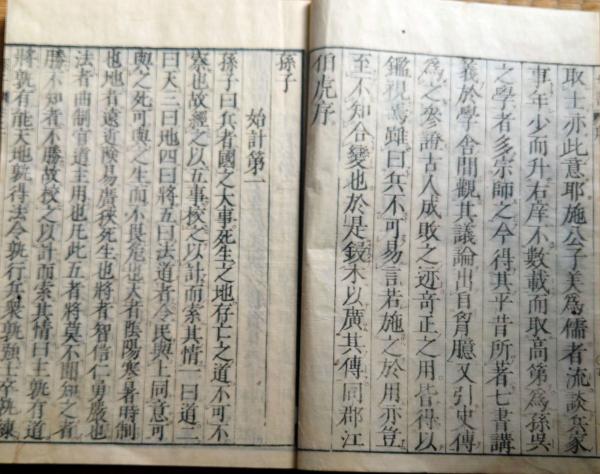 取士亦此意耶施公子美為儒者流談兵家
事年少而升右庠不數載而取高第為孫吳
之學者多宗師之今得其平昔所著七書講
義於學舍間觀其議論出自胷臆又引史傳
為之參證古人成敗之迹奇正之用皆得以
鑑視焉雖曰兵不可易言若施之於用亦豈
至不知合變也於是鋟木以廣其傳同郡江
伯虎序
孫子
始計第一
孫子曰兵者國之大事死生之地存亡之道不可不
察也故經之以五事校之以計而索其情一曰道二
曰天三曰地四曰將五曰法道者令民與上同意可
與之死可與之生而不畏危也天者陰陽寒暑時制
也地者遠近險易廣狹死生也將者智信仁勇嚴也
法者曲制官道主用也凡此五者將莫不聞知之者
勝不知者不勝故校之以計而索其情曰主孰有道
將孰有能天地孰得法令孰行兵衆孰強士卒孰練